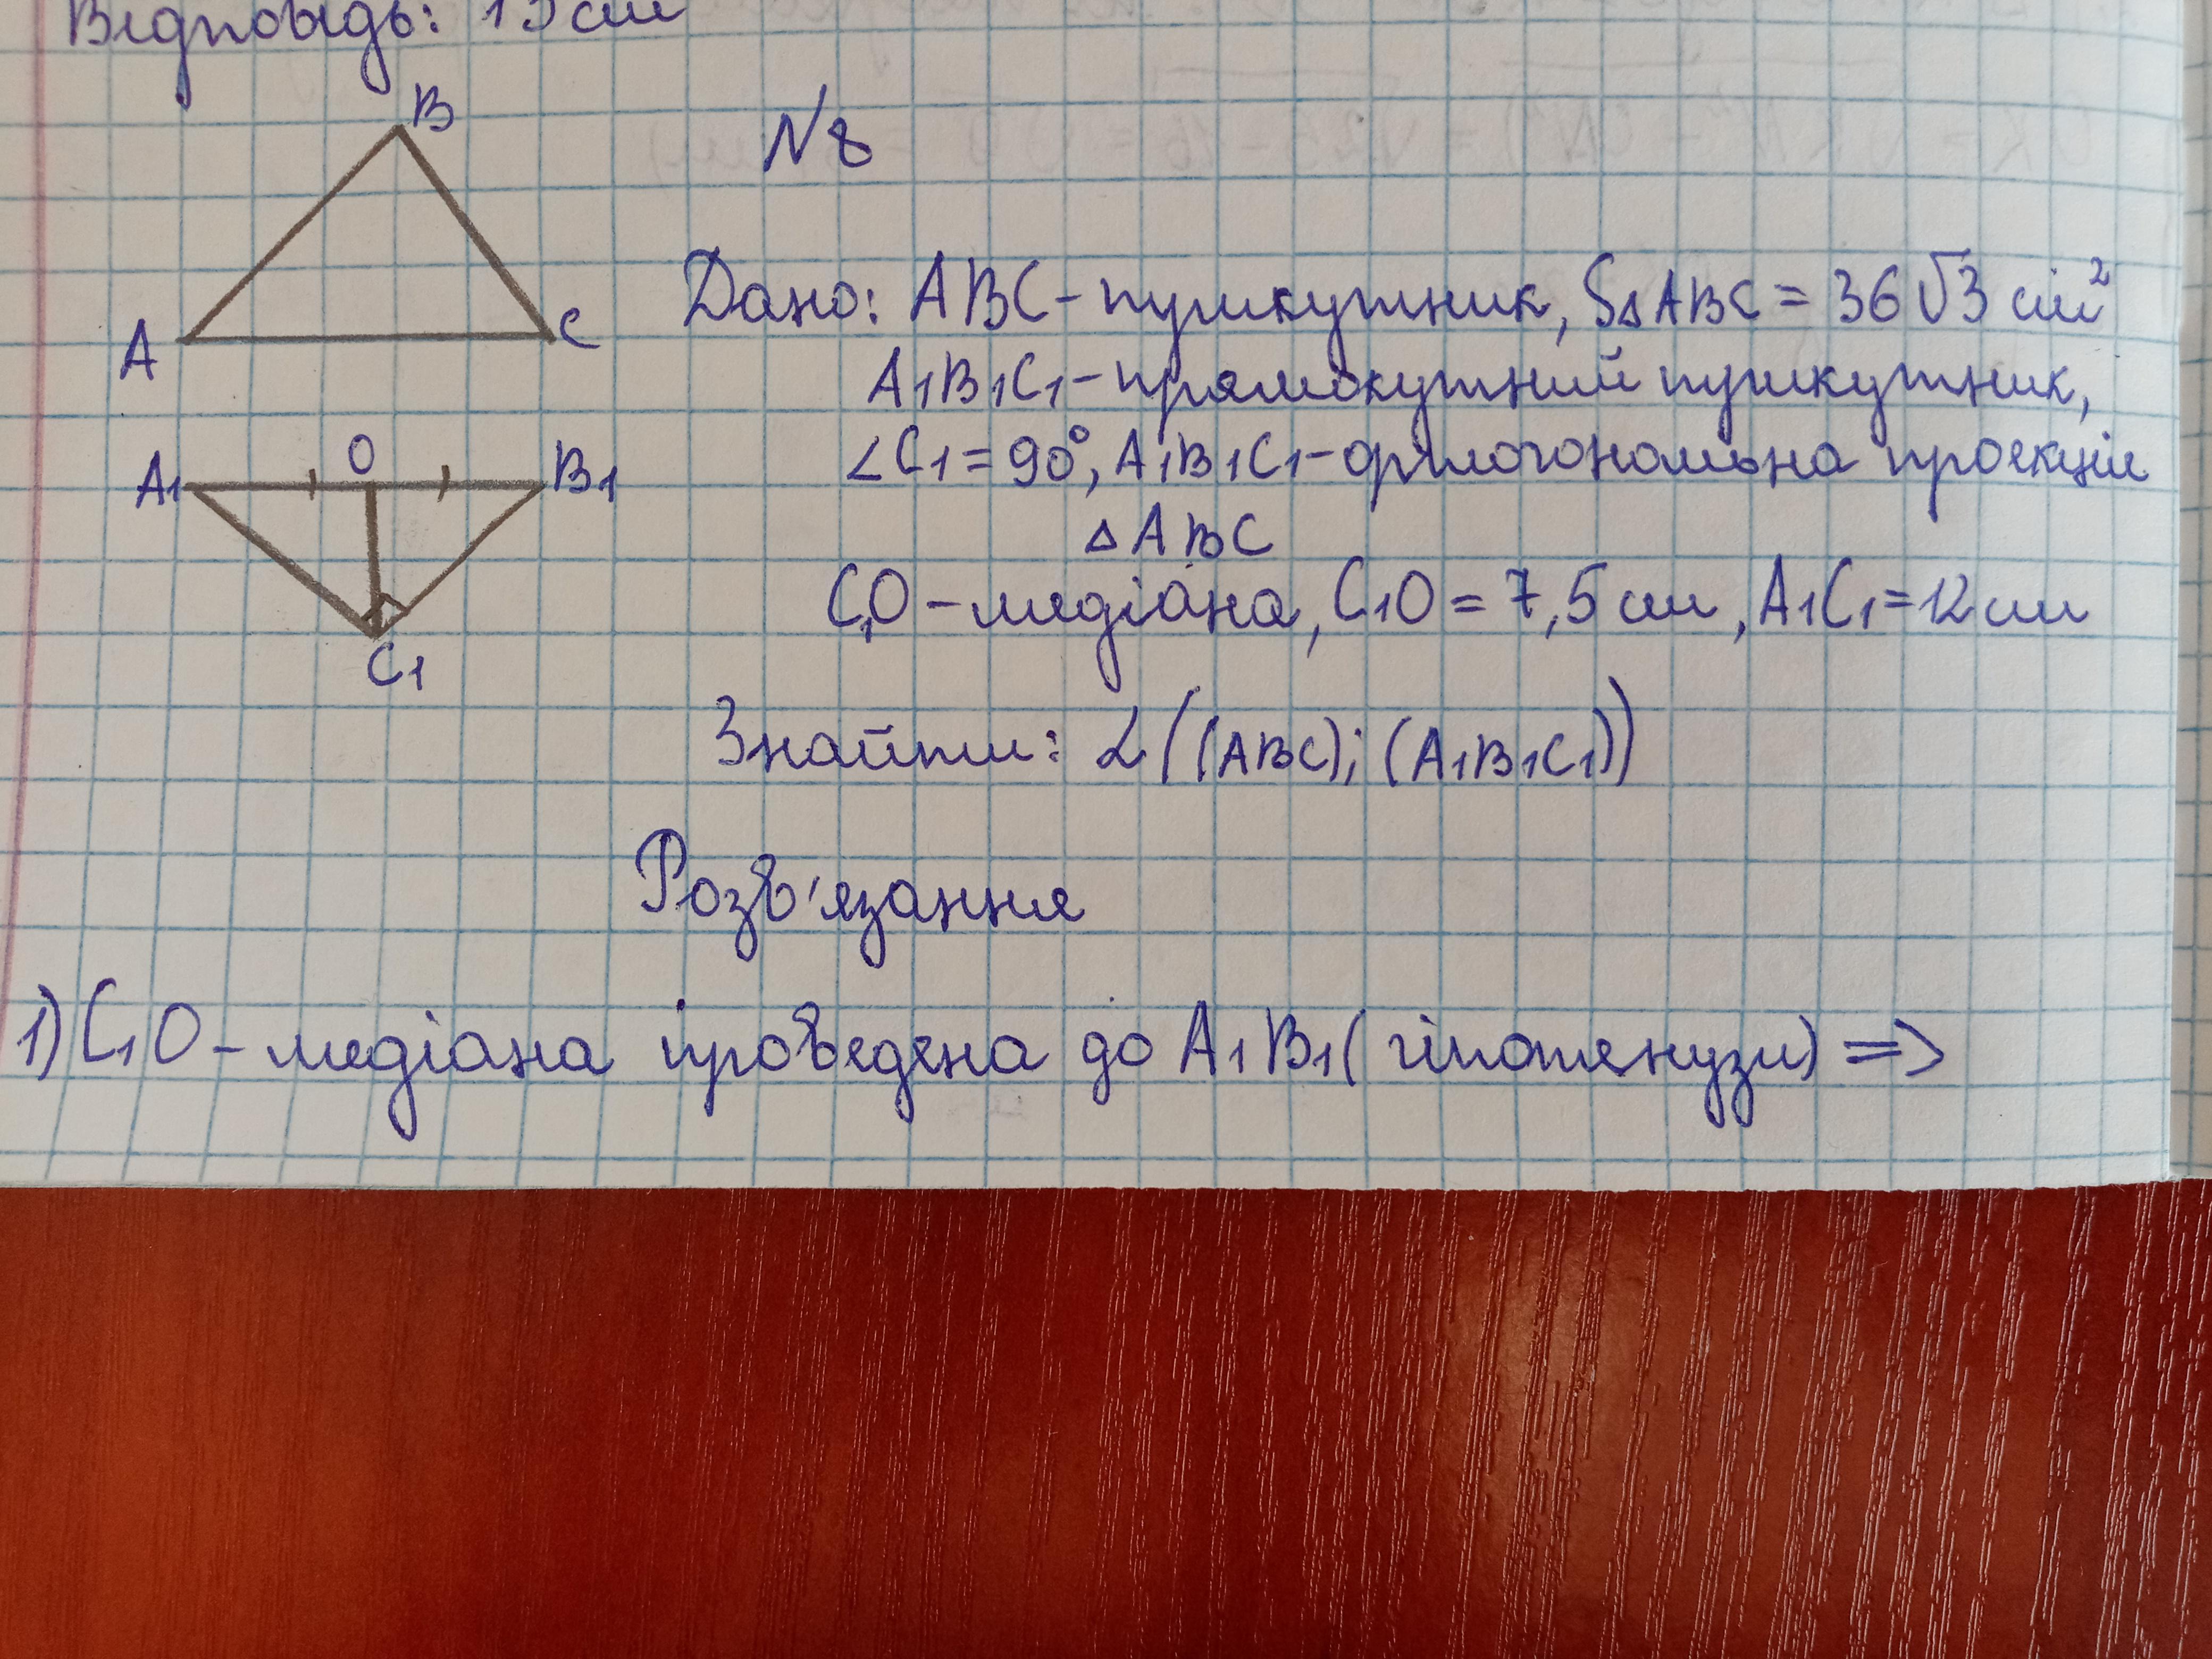 Відповідь: 15 см
B
N 8
A
C
Дано: ABC - трикутник, S△ABC = 36√3 см²
A₁B₁C₁ - прямокутний трикутник,
A₁
O
B₁
∠C₁ = 90°, A₁B₁C₁ - ортогональна проекція
△ABC
C₁O - медіана, C₁O = 7,5 см, A₁C₁ = 12 см
C₁
Знайти: ∠((ABC); (A₁B₁C₁))
Розв'язання
1) C₁O - медіана проведена до A₁B₁ (гіпотенузи) =>